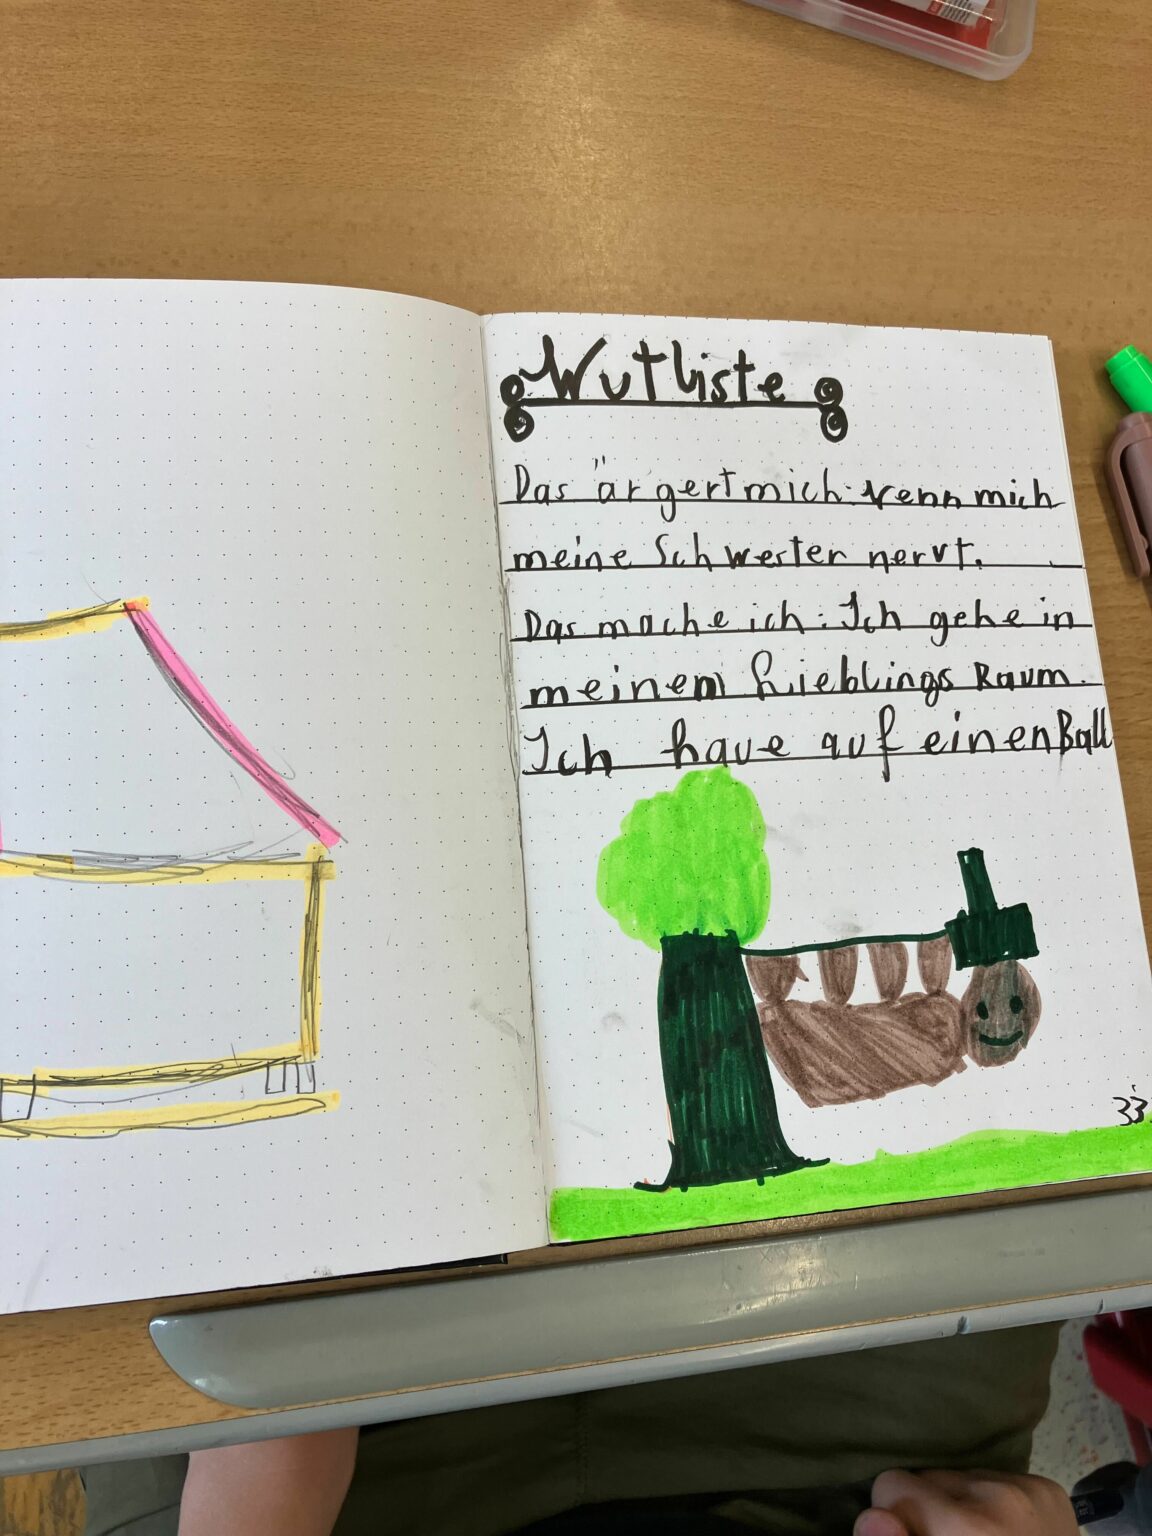 Wutliste
Das ärgert mich: wenn mich
meine Schwester nervt.
Das mache ich: Ich gehe in
meinem Lieblings Raum.
Ich haue auf einen Ball
33